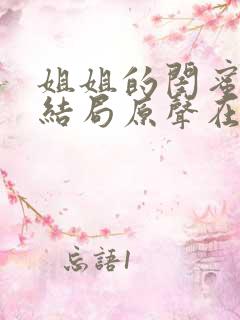 姐姐的閨蜜
結局原聲在
忘語1